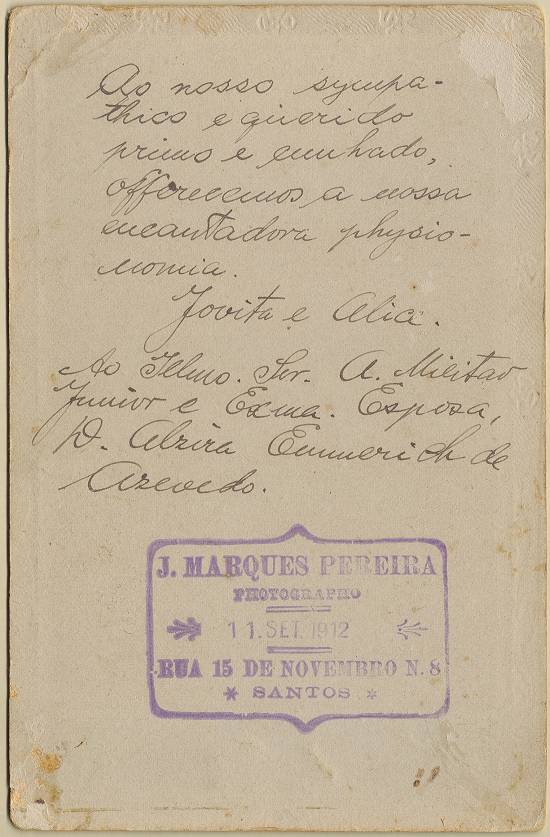 Ao nosso sympa-
thico e querido
primo e cunhado,
offerecemos a nossa
encantadora physio-
nomia.
Jovita e Alice.
Ao Illmo. Snr. A. Militao
Junior e Exma. Esposa,
D. Alzira Emmerich de
Azevedo.
J. MARQUES PEREIRA
PHOTOGRAPHO
11. SET. 1912
RUA 15 DE NOVEMBRO N. 8
* SANTOS *